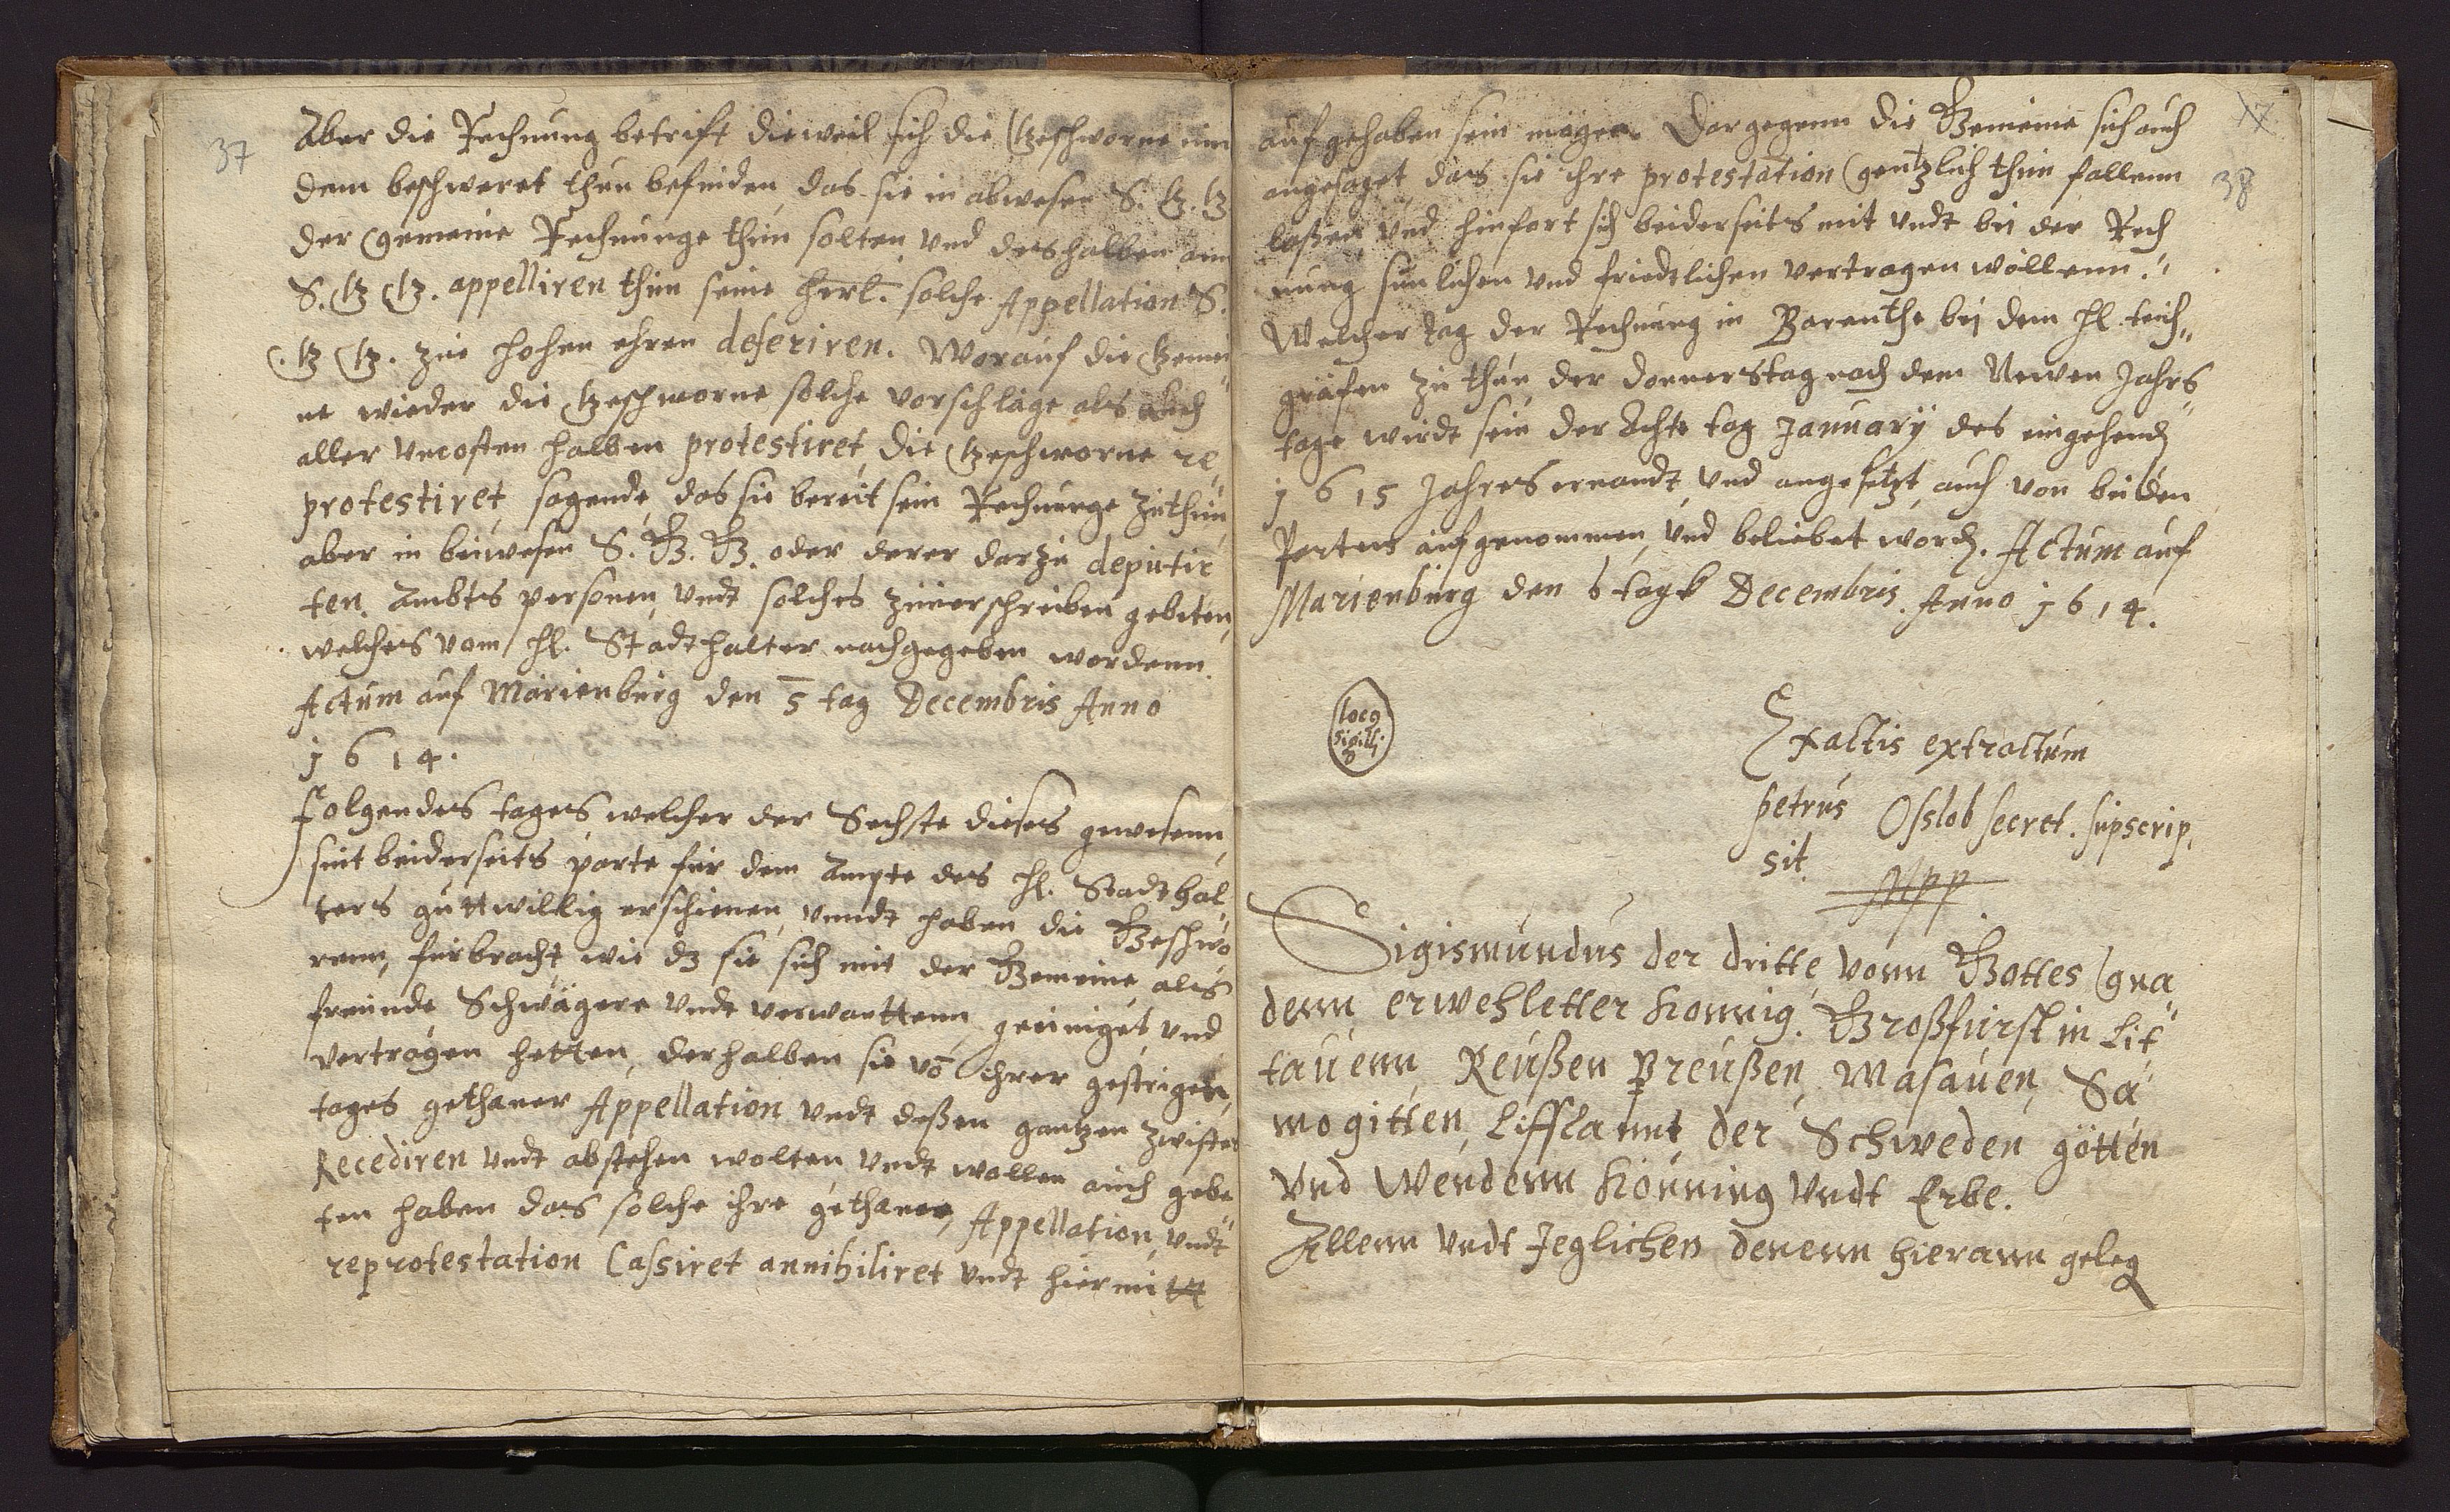 37
Aber die Rechnung betrift dieweil sich die Geschworne inn
dem beschweret thun befinden, das sie in abwesen S. G. G
der Gemeine Rechnunge thun solten und deshalben ann
S. G G. appelliren thun seine herl. solche Appellation S.
G G. zue hohen ehren deferiren. Worauf die Gemei
ne wieder die Geschworne solche vorschläge als auch
aller uncosten halben protestiret, die Geschworne re„
protestiret, sagende, das sie bereit sein Rechnunge zuthun
aber in beiwesen S. G. G. oder derer darzu deputir
ten. Ambts personen, undt solches zuverschreiben gebeten,
welches vom hl. Stadthalter nachgegeben wordenn.
Actum auf Marienburg den 5 tag Decembris Anno
1614.
Folgendes tages welcher der Sechste dieses gewesenn,
sint beiderseits parte für dem Ampte des hl. Stadthal„
ters guttwillig erschienen, unndt haben die Geschwo
renn, fürbracht wie dz sie sich mit der Gemeine als
freunde Schwägere undt verwanttenn geeiniget und
vertragen hetten, derhalben sie vō ihrer gestrigen,
tages gethaner Appellation undt deßen gantzen zwistes
Recediren undt abstehen wolten, undt wollen auch gebe„
ten haben das solche ihre gethane, Appellation, undt
reprotestation Cassiret annihiliret undt hiermitt
17
38
aufgehaben sein mögen. Dargegenn die Gemeine sich auch
angesaget, das sie ihre protestation gentzlich thun fallenn
laßen, und hinfort sich beiderseits mit undt bei der Rech
nung sünlichen und friedtlichen vertragen wöllenn.
Welcher tag der Rechnung in Barenthe bei dem hl. teich„
gräfen zu thun, der donnerstag nach dem Newen Jahrs„
tage wirdt sein der Achte tag January des eingehend
1615 Jahres ernandt, und angesetzt, auch von beiden
Parten aufgenommen, und beliebet word. Actum auf
Marienburg den 6 tagk Decembris. Anno 1614.
loco
Sigilli
Ex actis extractum
petrus Osslob secret. supscrip,
sit.
Mpp
Sigismundus der dritte, vonn Gottes gna„
denn, erwehletter Konnig. Großfürst in Lit„
tauenn, Reußen Preußen, Masauen, Sa
mogitten, Lifflannt, der Schweden götten
und Wendenn Könning undt Erbe.
Allenn undt Jeglichen denenn hierann geleg